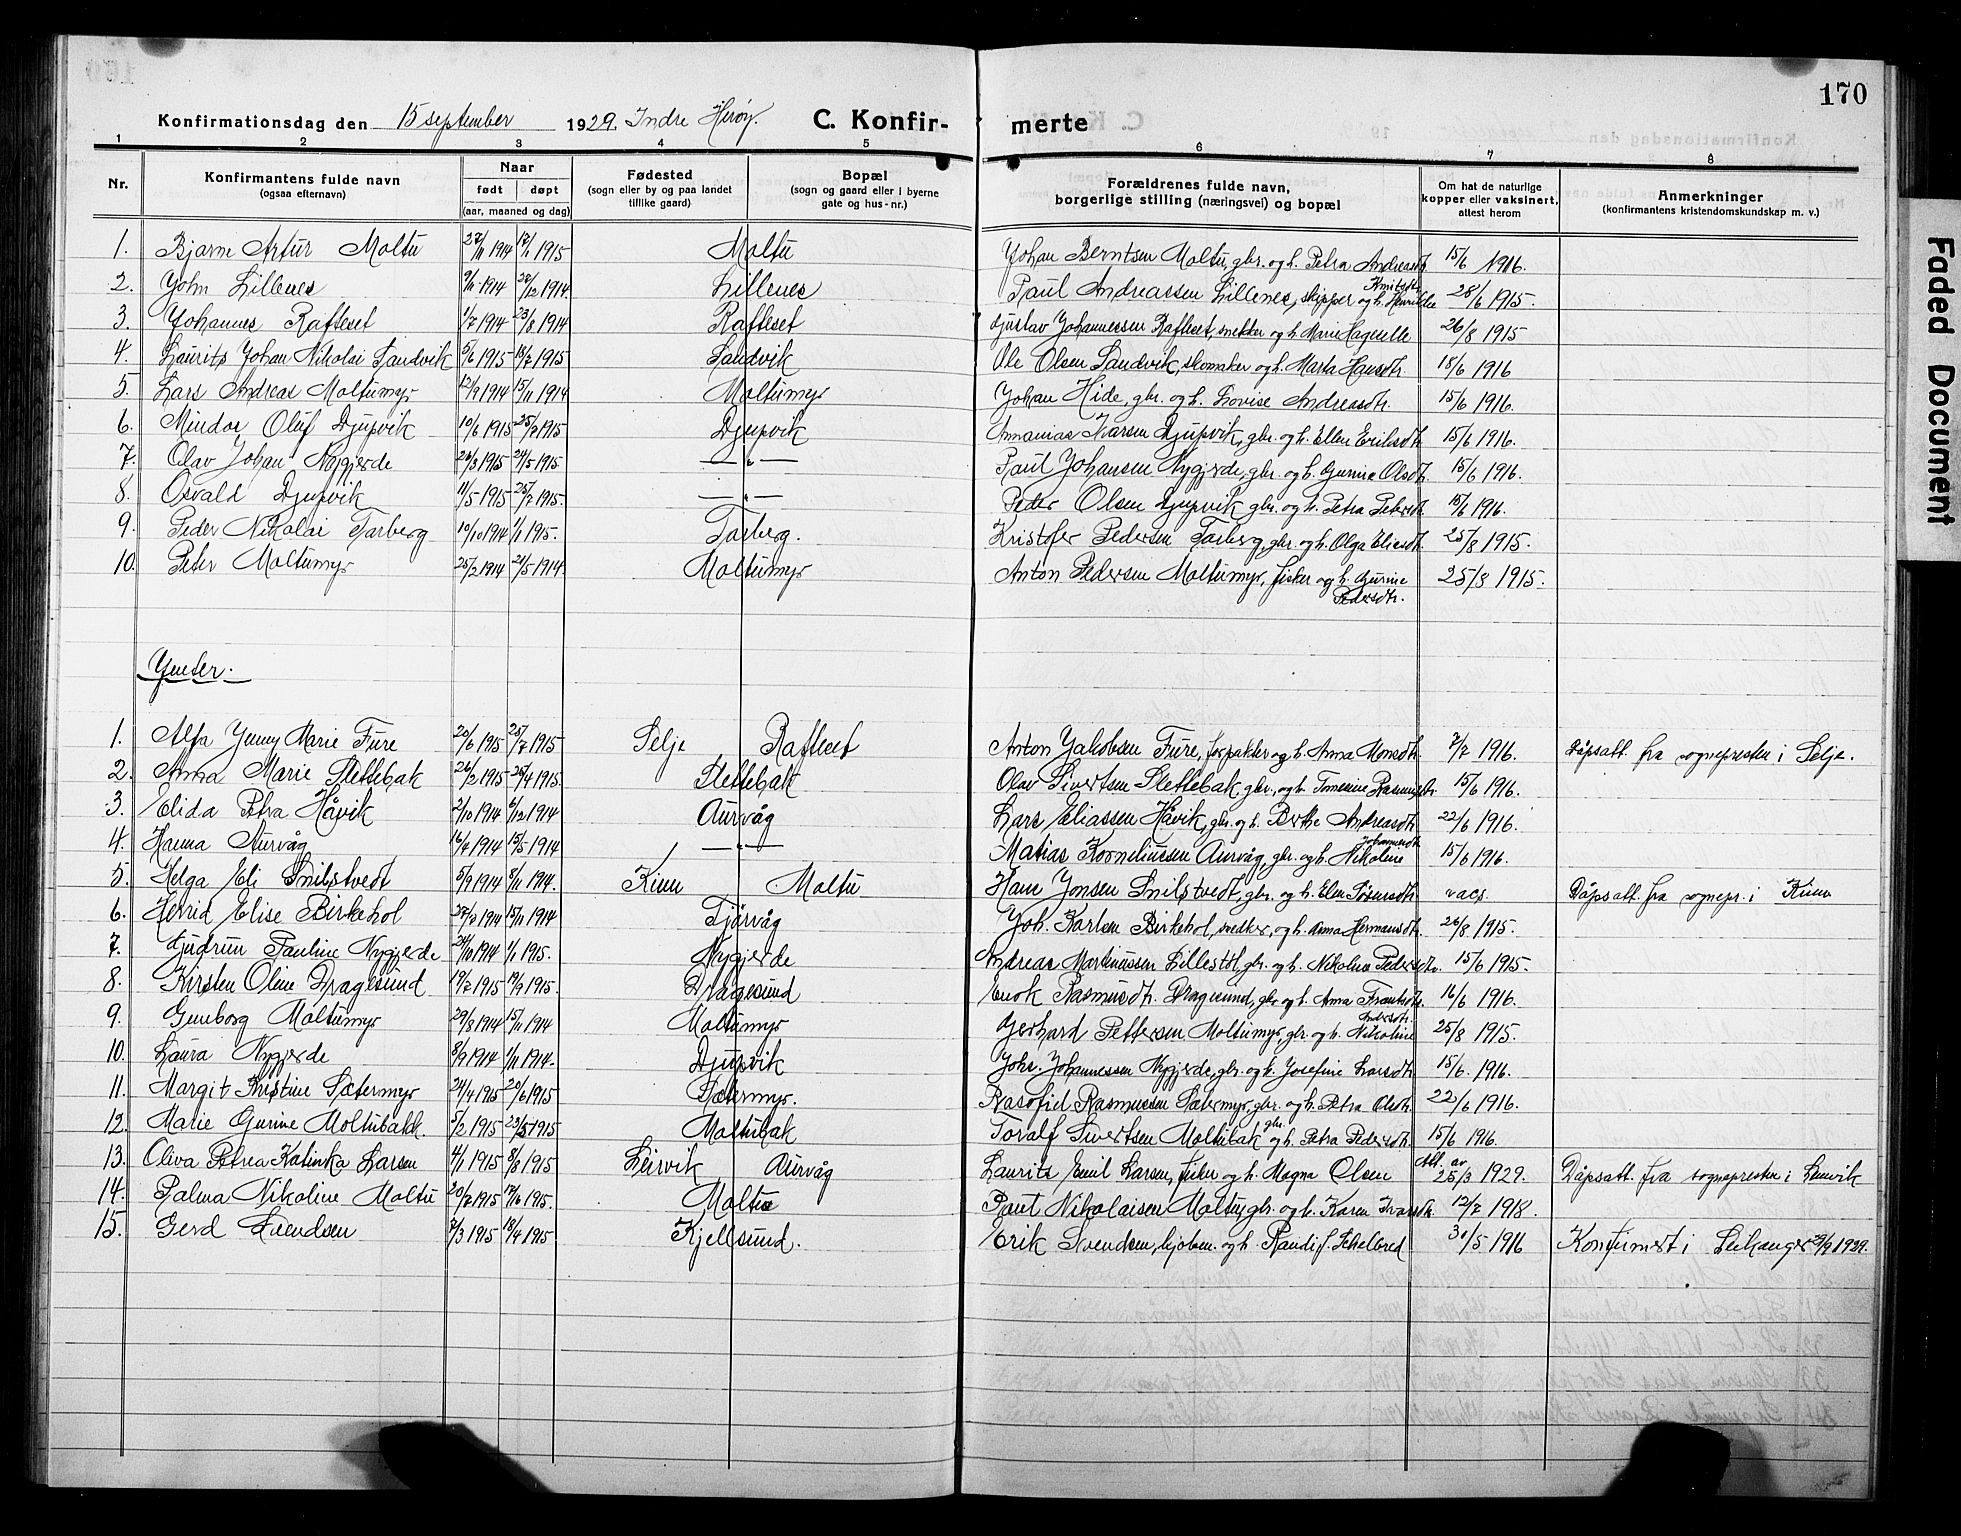 170
Konfirmationsdag den 15 september 1929. Indre Herøy. C. Konfir- merte
1 2 3 4 5 6 7 8
Nr. Konfirmantens fulde navn (ogsaa efternavn) Naar født døpt (aar, maaned og dag) Fødested (sogn eller by og paa landet tillike gaard) Bopæl (sogn og gaard eller i byerne gate og hus-nr.) Forældrenes fulde navn, borgerlige stilling (næringsvei) og bopæl Om hat de naturlige kopper eller vaksinert, attest herom Anmerkninger (konfirmantens kristendomskundskap m. v.)
1. Bjarne Artur Moltu 1914 1915 Moltu Johan Berntsen Moltu, gbr. og h. Petra Andreasdt. 15/6 1916.
2. John Lillenes 9/11 1914 28/12 1914. Lillenes Paul Andreassen Lillenes, skipper og h. Henrikke Knutsdt. 28/6 1915.
3. Johannes Rafteset 1/7 1914 23/8 1914 Rafteset Gustav Johannessen Rafteset, snekker og h. Marie Haguelle 26/8 1915
4. Laurits Johan Nikolai Sandvik 5/6 1915 18/7 1915 Sandvik Ole Olsen Sandvik, skomaker og h. Marta Hansdt. 18/6 1916
5. Lars Andreas Moltumyr 12/9 1914 15/11 1914 Moltumyr Johan Hide, gbr. og h. Lovise Andreasdt. 15/6 1916.
6. Mindor Oluf Djupvik 10/6 1915 25/7 1915 Djupvik Ananias Larsen Djupvik, gbr. og h. Ellen Eriksdt. 15/6 1916.
7. Olav Johan Nygjerde 26/3 1915 24/5 1915. —"— Paul Johansen Nygjerde, gbr. og h. Gurine Olsdt. 15/6 1916.
8. Osvald Djupvik 11/5 1915 25/7 1915. —"— Peder Olsen Djupvik gbr. og h. Petra Petersdt. 15/6 1916.
9. Peder Nikolai Tarberg 10/10 1914 1/1 1915. Tarberg. Kristofer Pedersen Tarberg, gbr. og h. Olga Eliasdt. 25/8 1915.
10. Peter Moltumyr 25/2 1914 21/5 1914. Moltumyr Anton Pedersen Moltumyr, fisker og h. Gurine Pedersdt. 25/8 1915.
Jenter.
1. Alfa Jenny Marie Fure 20/6 1915 25/7 1915 Selje Rafteset Anton Jakobsen Fure, forpakter og h. Anna Monsdt. 7/7 1916. Dåpsatt. fra sognepresten i Selje.
2. Anna Marie Slettebak 26/2 1915 25/4 1915. Slettebak Olav Sivertsen Slettebak gbr., og h. Tomine Rasmusdt. 15/6 1916.
3. Elida Petra Håvik 2/10 1914 6/12 1914 Aurvåg Lars Eliassen Håvik, gbr. og h. Berthe Andreasdt. 22/6 1916.
4. Hanna Aurvåg 16/4 1914 15/5 1914 —"— Matias Korneliussen Aurvåg, gbr. og h. Nikoline Johannesdt. 15/6 1916.
5. Helga Eli Snilstvedt 5/9 1914 8/11 1914. Kinn Moltu Hans Jonsen Snilstvedt, gbr. og h. Elen Sørensdt. vacs. Dåpsatt. fra sognepr. i Kinn
6. Henrid Elise Birkehol 1914 15/11 1914 Tjørvåg Joh. Karlsen Birkehol, snekker, og h. Anna Hermansdt. 26/8 1915.
7. Gudrun Pauline Nygjerde 24/10 1914 1/1 1915. Nygjerde Andreas Martinussen Lillestøl, gbr. og h. Nikolina Pedersdtr. 15/6 1915.
8. Kirsten Oline Dragesund 19/7 1915 19/9 1915. Dragesund Enok Rasmusdt. Dragesund, gbr og h. Anna Frantsdt. 16/6 1916.
9. Gunborg Moltumyr 29/8 1914 15/11 1914 Moltumyr Gerhard Pettersen Moltumyr, gbr. og h. Nikoline Andersdt. 25/8 1915.
10. Laura Nygjerde 8/9 1914 1/11 1914. Djupvik Johs. Johannessen Nygjerde, gbr. og h. Josefine Larsdt. 15/6. 1916.
11. Margit Kristine Sætermyr 24/4 1915 20/6 1915 Sætermyr. Rasofiel Rasmussen Sætermyr, gbr. og h. Petra Olsdt. 22/6 1916.
12. Marie Gurine Moltubakk. 5/2 1915 23/5 1915 Moltubak Toralf Sivertsen Moltubak gbr. og h. Petra Pedersdt. 15/6 1916.
13. Oliva Petrea Katinka Larsen 4/1 1915 8/8 1915 Leirvik Aurvåg Laurits Emil Larsen, fisker og h. Magna Olsen Att. av 25/3 1929. Dåpsatt. fra sognepresten i Lenvik
14. Palma Nikoline Moltu 20/7 1915 1915. Moltu Paul Nikolaisen Moltu, gbr. og h. Karen Ivarsdt. 12/7 1918.
15. Gerd Svendsen 7/3 1915 18/4 1915 Kjellsund. Erik Svendsen, kjøbm. og h. Randi f. Schelbred 30/5 1916 Konfirmert i Leikanger 29/9 1929.
Faded Document